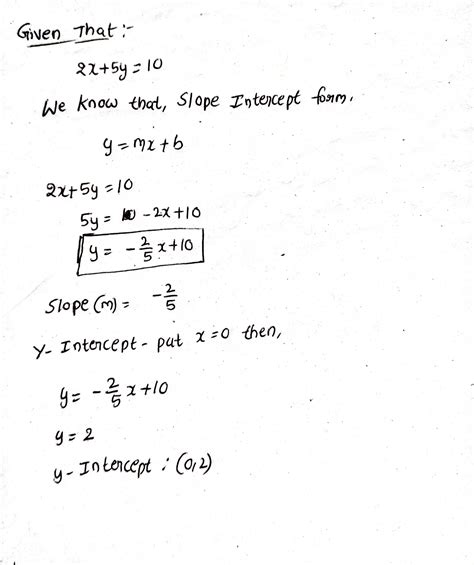 Given That:-
2x+5y=10
We know that, Slope Intercept form.
y=mx+b
2x+5y=10
5y= -2x+10
y= -2/5 x+10
Slope(m)= -2/5
Y- Intercept- put x=0 then,
y= -2/5 x+10
y=2
y-Intercept : (0,2)